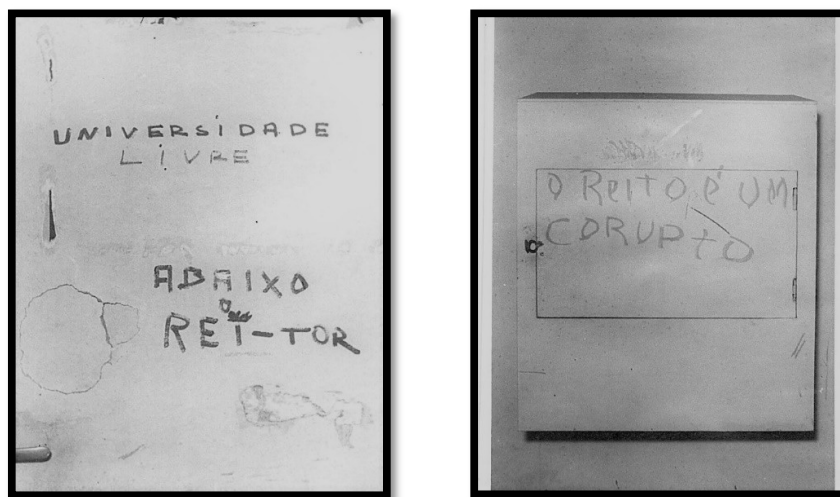 UNIVERSIDADE
LIVRE
ABAIXO
O
REI-TOR
O REITO é UM
CORUPTO